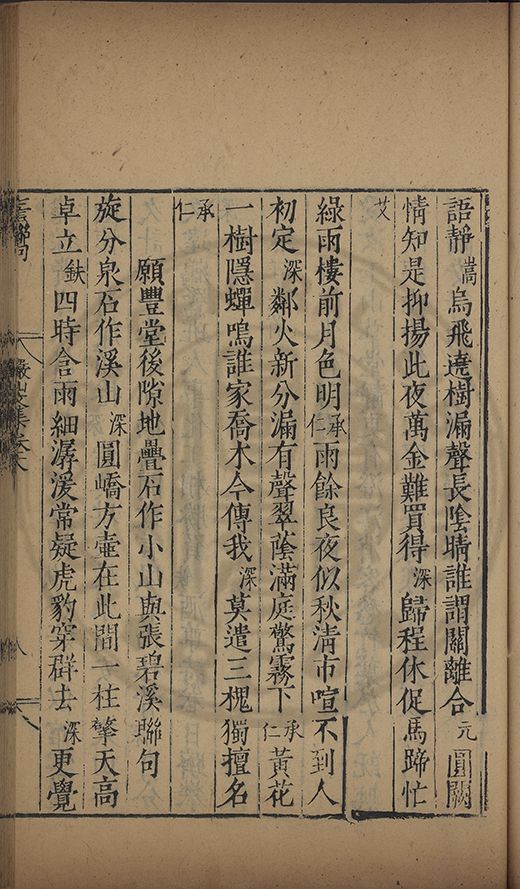 語靜嵩烏飛遶樹漏聲長陰晴誰謂關離合元圓闕
情知是抑揚此夜萬金難買得深歸程休促馬蹄忙
艾
綠雨樓前月色明承仁雨餘良夜似秋清市喧不到人
初定深鄰火新分漏有聲翠蔭滿庭驚霧下承仁黃花
一樹隱蟬鳴誰家喬木今傳我深莫遣三槐獨擅名
承仁
願豐堂後隙地疊石作小山與張碧溪聯句
旋分泉石作溪山深圓嶠方壺在此間一柱擎天高
卓立鈇四時含雨細潺湲常疑虎豹穿群去深更覺